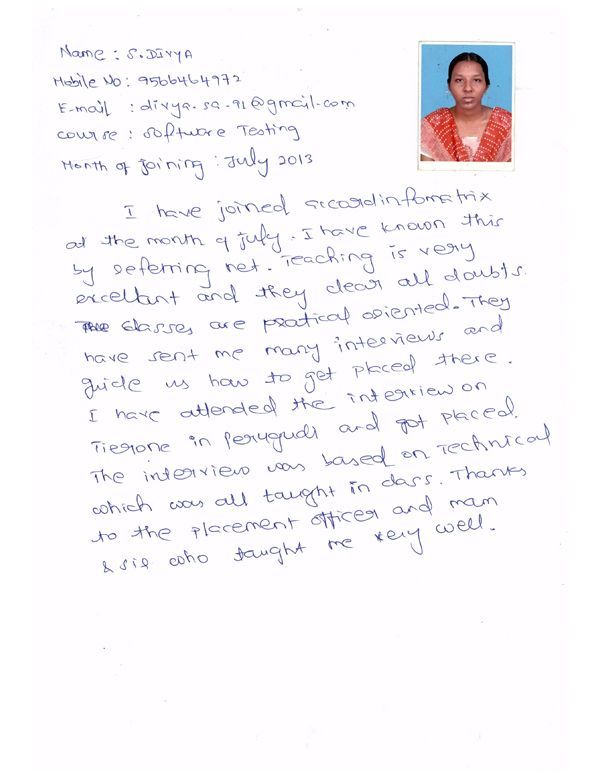 Name : S. DIVYA
Mobile No : 9566464972
E-mail : divya.sa.91@gmail.com
Course : Software Testing
Month of joining : July 2013
I have joined accordinfomatrix
at the month of july. I have known this
by referring net. Teaching is very
excellant and they clear all doubts.
The classes are pratical oriented. They
have sent me many interviews and
guide us how to get placed there.
I have attended the interview on
Tierone in perugudi and got placed.
The interview was based on Technical
which was all taught in class. Thanks
to the placement officer and mam
& sir who taught me very well.